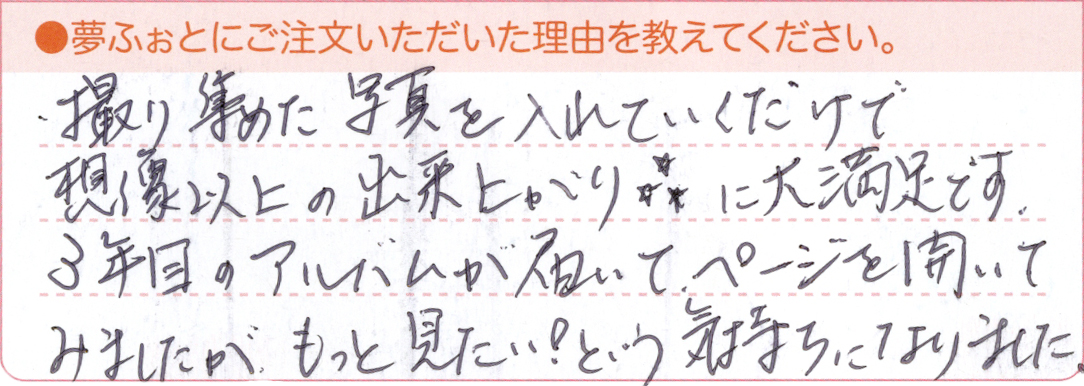 ●夢ふぉとにご注文いただいた理由を教えてください。
・撮り集めた写真を入れていくだけで
想像以上の出来上がり☆☆☆に大満足です.
3年目のアルバムが届いて、ページを開いて
みましたが、もっと見たい!という気持ちになりました。